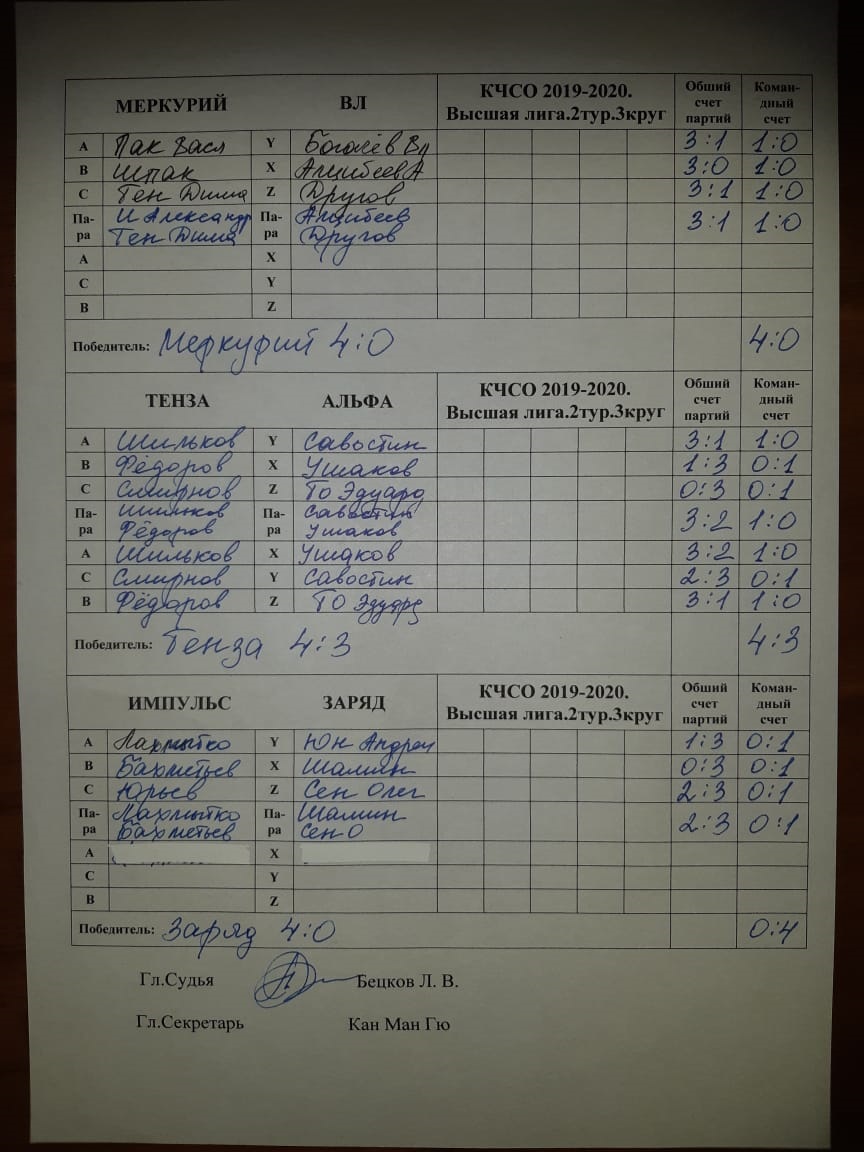 МЕРКУРИЙ ВЛ КЧСО 2019-2020. Высшая лига.2тур.3круг Обший счет партий Коман-дный счет
A Пак Васл Y Боголев Вл 3:1 1:0
B Шпак X Анцибеев А 3:0 1:0
C Тен Дима Z Другов 3:1 1:0
Па-ра И Александр Па-ра Анцибеев 3:1 1:0
Тен Дима Другов
A X
C Y
B Z
Победитель: Меркурий 4:0 4:0
ТЕНЗА АЛЬФА КЧСО 2019-2020. Высшая лига.2тур.3круг Обший счет партий Коман-дный счет
A Шильков Y Савостин 3:1 1:0
B Фёдоров X Ушаков 1:3 0:1
C Смирнов Z То Эдуард 0:3 0:1
Па-ра Шильков Па-ра Савостин 3:2 1:0
Фёдоров Ушаков
A Шильков X Ушаков 3:2 1:0
C Смирнов Y Савостин 2:3 0:1
B Фёдоров Z То Эдуард 3:1 1:0
Победитель: Тенза 4:3 4:3
ИМПУЛЬС ЗАРЯД КЧСО 2019-2020. Высшая лига.2тур.3круг Обший счет партий Коман-дный счет
A Лахмытко Y Юн Андреи 1:3 0:1
B Бахметьев X Шамин 0:3 0:1
C Юрьев Z Сен Олег 2:3 0:1
Па-ра Лахмытко Па-ра Шамин 2:3 0:1
Бахметьев Сен О
A X
C Y
B Z
Победитель: Заряд 4:0 0:4
Гл.Судья Бецков Л. В.
Гл.Секретарь Кан Ман Гю